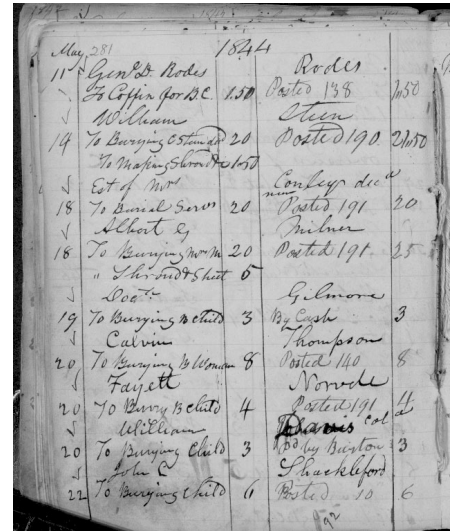 May 281 1844
11 Genl D. Rodes Rodes
To Coffin for B.C. 1.50 Posted 138 1.50
William Steen
14 To Burying 20 Posted 190 21.50
To Making Shroud 1.50
Est of Mrs Conleys decd
18 To Burial Servs 20 Posted 191 20
Albert G Milner
18 To Burying Mrs M 20 Posted 191 25
" Shroud & Sheet 5
Doctr Gilmore
19 To Burying B Child 3 By Cash 3
Calvin Thompson
20 To Burying B Woman 8 Posted 140 8
Fayett Norvele
20 To Burry B Child 4 Posted 191 4
William Davis Cold
20 To Burying Child 3 Pd by Burton 3
John C Shackleford
22 To Burying Child 6 Posted 10 6
92